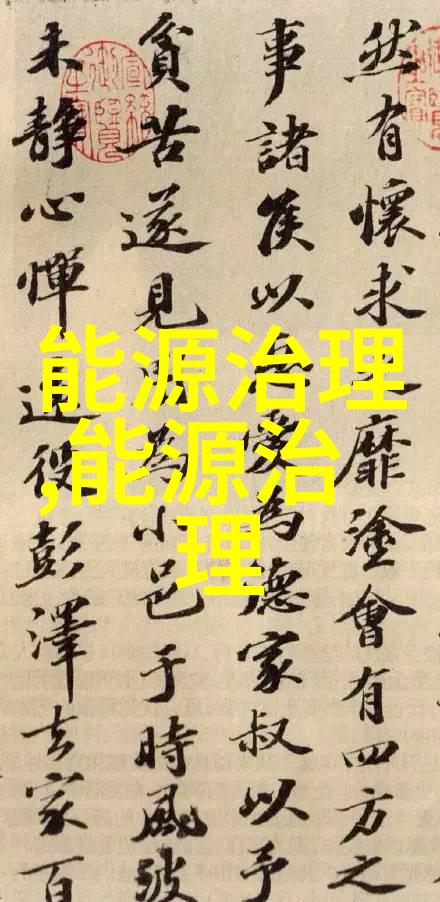 然有懷求之靡塗會有四方之
事諸侯以惠愛為德家叔以予
貧苦遂見用為小邑于時風波
未靜心憚遠役彭澤去家百
能源治理
,能源治
理